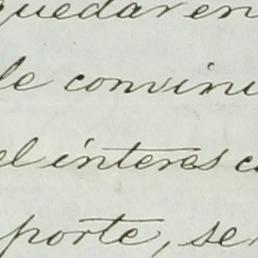 quedar en
le convini
el interes c
porte, se